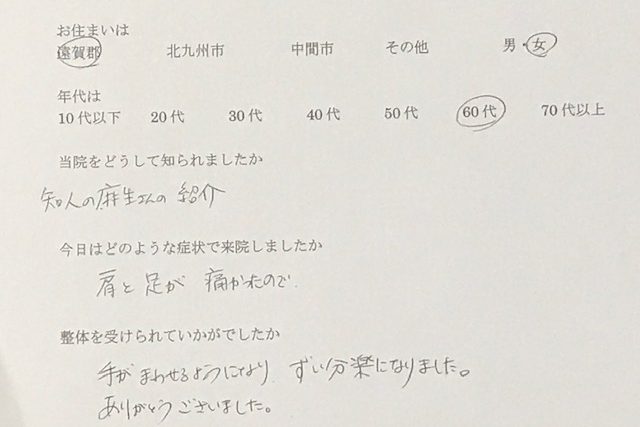 お住まいは
遠賀郡 北九州市 中間市 その他 男・女
年代は
10代以下 20代 30代 40代 50代 60代 70代以上
当院をどうして知られましたか
知人の麻生さんの 紹介
今日はどのような症状で来院しましたか
肩と足が 痛かったので
整体を受けられていかがでしたか
手がまわせるようになり ずい分楽になりました。
ありがとうございました。